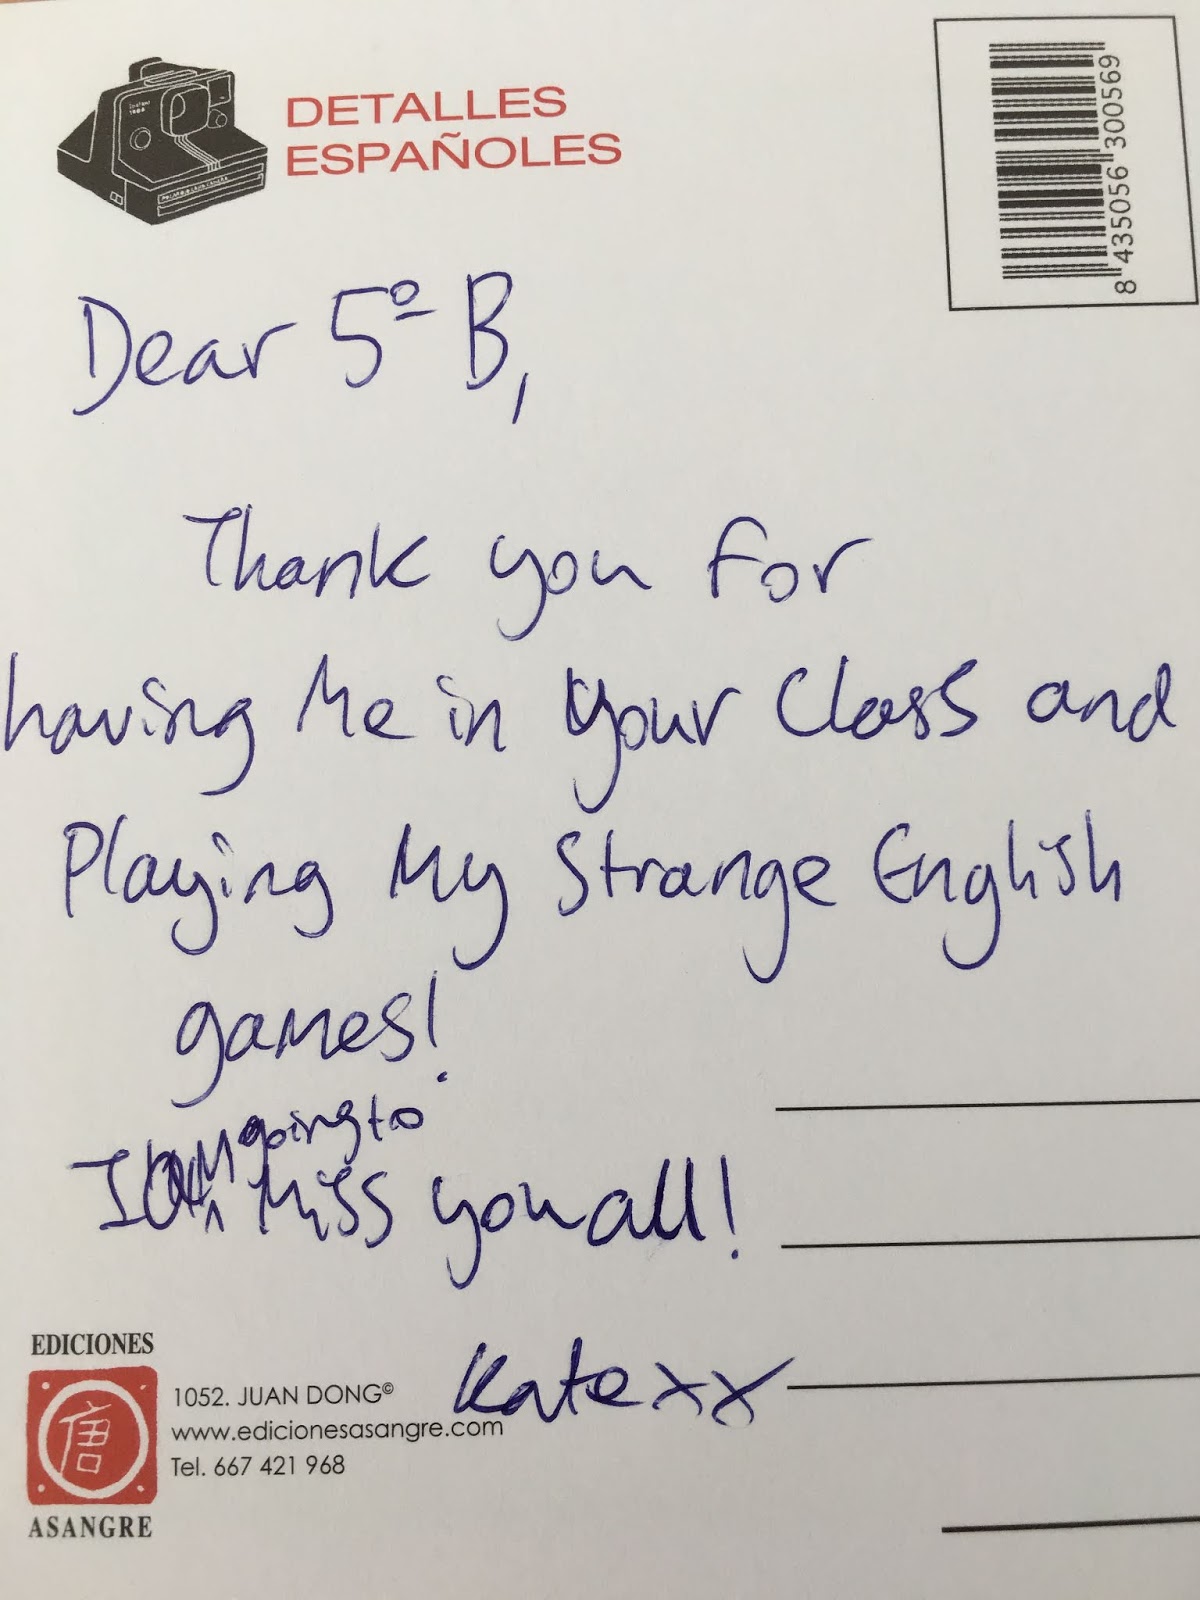 DETALLES
ESPAÑOLES
8 435056 300569
Dear 5º B,
Thank you for
having me in your class and
Playing my strange English
games!
going to
I am ^ miss you all!
Kate xx
EDICIONES
唐
ASANGRE
1052. JUAN DONG©
www.edicionesasangre.com
Tel. 667 421 968